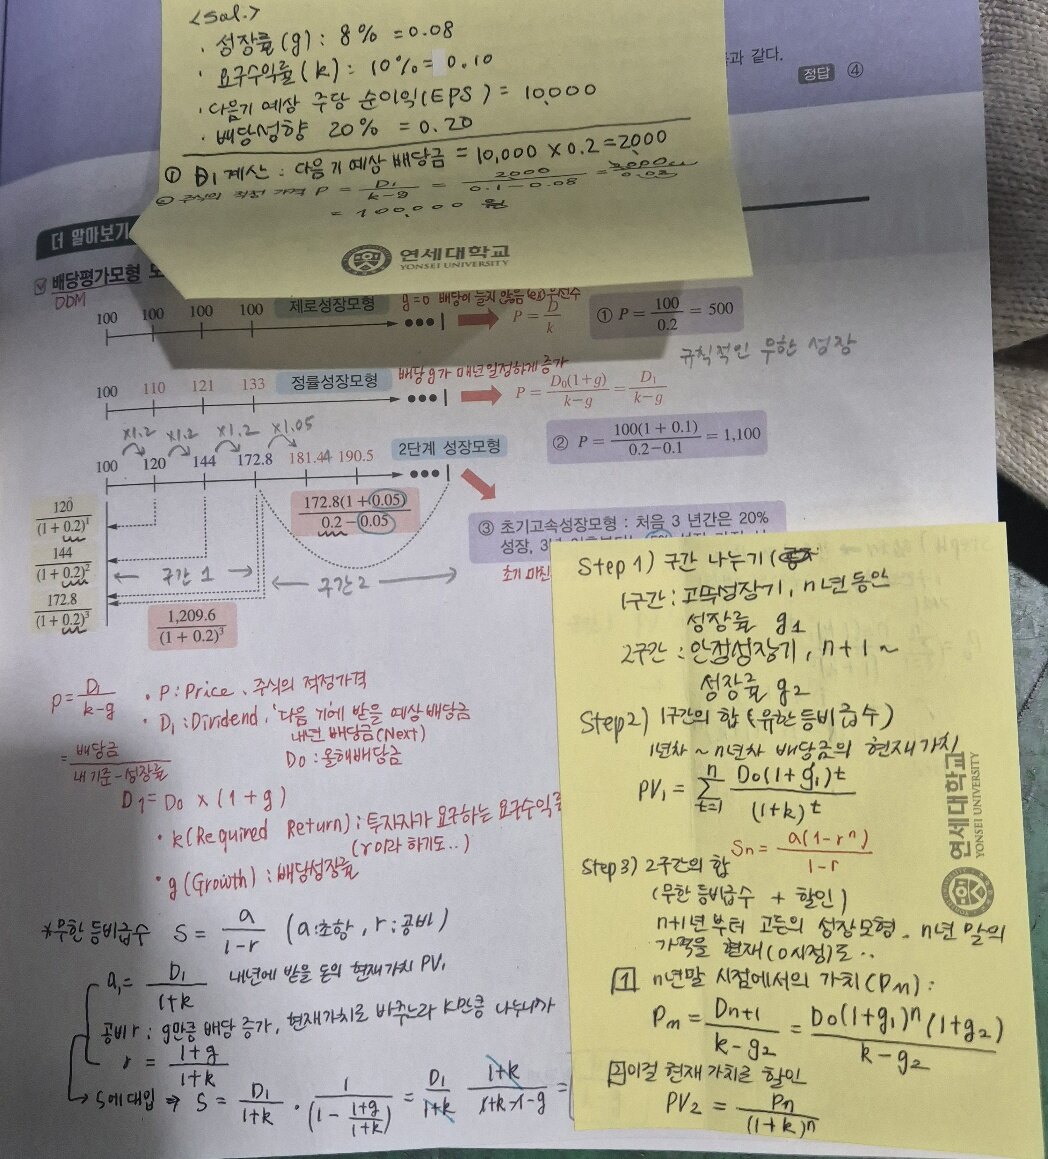 <Sol.>
· 성장률(g) : 8% = 0.08
· 요구수익률(k) : 10% = 0.10
· 다음기 예상 주당 순이익(EPS) = 10,000
· 배당성향 20% = 0.20
① D₁ 계산 : 다음 기 예상 배당금 = 10,000 × 0.2 = 2,000
② 주식의 적정 가격 P = D₁/(k-g) = 2,000/(0.1-0.08) = 2000/0.02
= 100,000 원
연세대학교
YONSEI UNIVERSITY
과 같다.
정답 ④
더 알아보기
배당평가모형
DDM
100 100 100 100 제로성장모형
g=0 배당이 늘지 않음 (ex) 우선주
P = D/k
① P = 100/0.2 = 500
규칙적인 무한 성장
100 110 121 133 정률성장모형
배당 g가 매년 일정하게 증가
P = D₀(1+g)/(k-g) = D₁/(k-g)
② P = 100(1+0.1)/(0.2-0.1) = 1,100
×1.2 ×1.2 ×1.2 ×1.05
100 120 144 172.8 181.44 190.5 2단계 성장모형
172.8(1+0.05)/(0.2-0.05)
③ 초기고속성장모형 : 처음 3년간은 20%
성장, 3년
초기
120/(1+0.2)¹
144/(1+0.2)²
172.8/(1+0.2)³
구간 1
구간 2
1,209.6/(1+0.2)³
P = D₁/(k-g)
· P : Price, 주식의 적정가격
· D₁ : Dividend, 다음 기에 받을 예상 배당금
내년 배당금(Next)
D₀ : 올해배당금
= 배당금/(내 기준-성장률)
D₁ = D₀ × (1+g)
· k (Required Return) : 투자자가 요구하는 요구수익률
(r이라 하기도..)
· g (Growth) : 배당성장률
*무한 등비급수 S = a/(1-r) (a:초항, r:공비)
a₁ = D₁/(1+k) 내년에 받을 돈의 현재가치 PV₁
공비 r : g만큼 배당 증가, 현재가치로 바꾸느라 k만큼 나누니까
r = (1+g)/(1+k)
S에 대입 ⇒ S = D₁/(1+k) · 1/(1-(1+g)/(1+k)) = D₁/(1+k) (1+k)/(1+k-1-g) =
Step 1) 구간 나누기
1구간 : 고속성장기, n년 동안
성장률 g₁
2구간 : 안정성장기, n+1 ~
성장률 g₂
Step 2) 1구간의 합 (유한 등비급수)
1년차 ~ n년차 배당금의 현재가치
PV₁ = Σ(t=1, n) D₀(1+g₁)^t/(1+k)^t
Sn = a(1-rⁿ)/(1-r)
Step 3) 2구간의 합
(무한 등비급수 + 할인)
n+1년부터 고든의 성장모형. n년 말의
가격을 현재(0시점)로..
1 n년말 시점에서의 가치(Pn) :
Pn = Dn+1/(k-g₂) = D₀(1+g₁)ⁿ(1+g₂)/(k-g₂)
2 이걸 현재 가치로 할인
PV₂ = Pn/(1+k)ⁿ
연세대학교
YONSEI UNIVERSITY